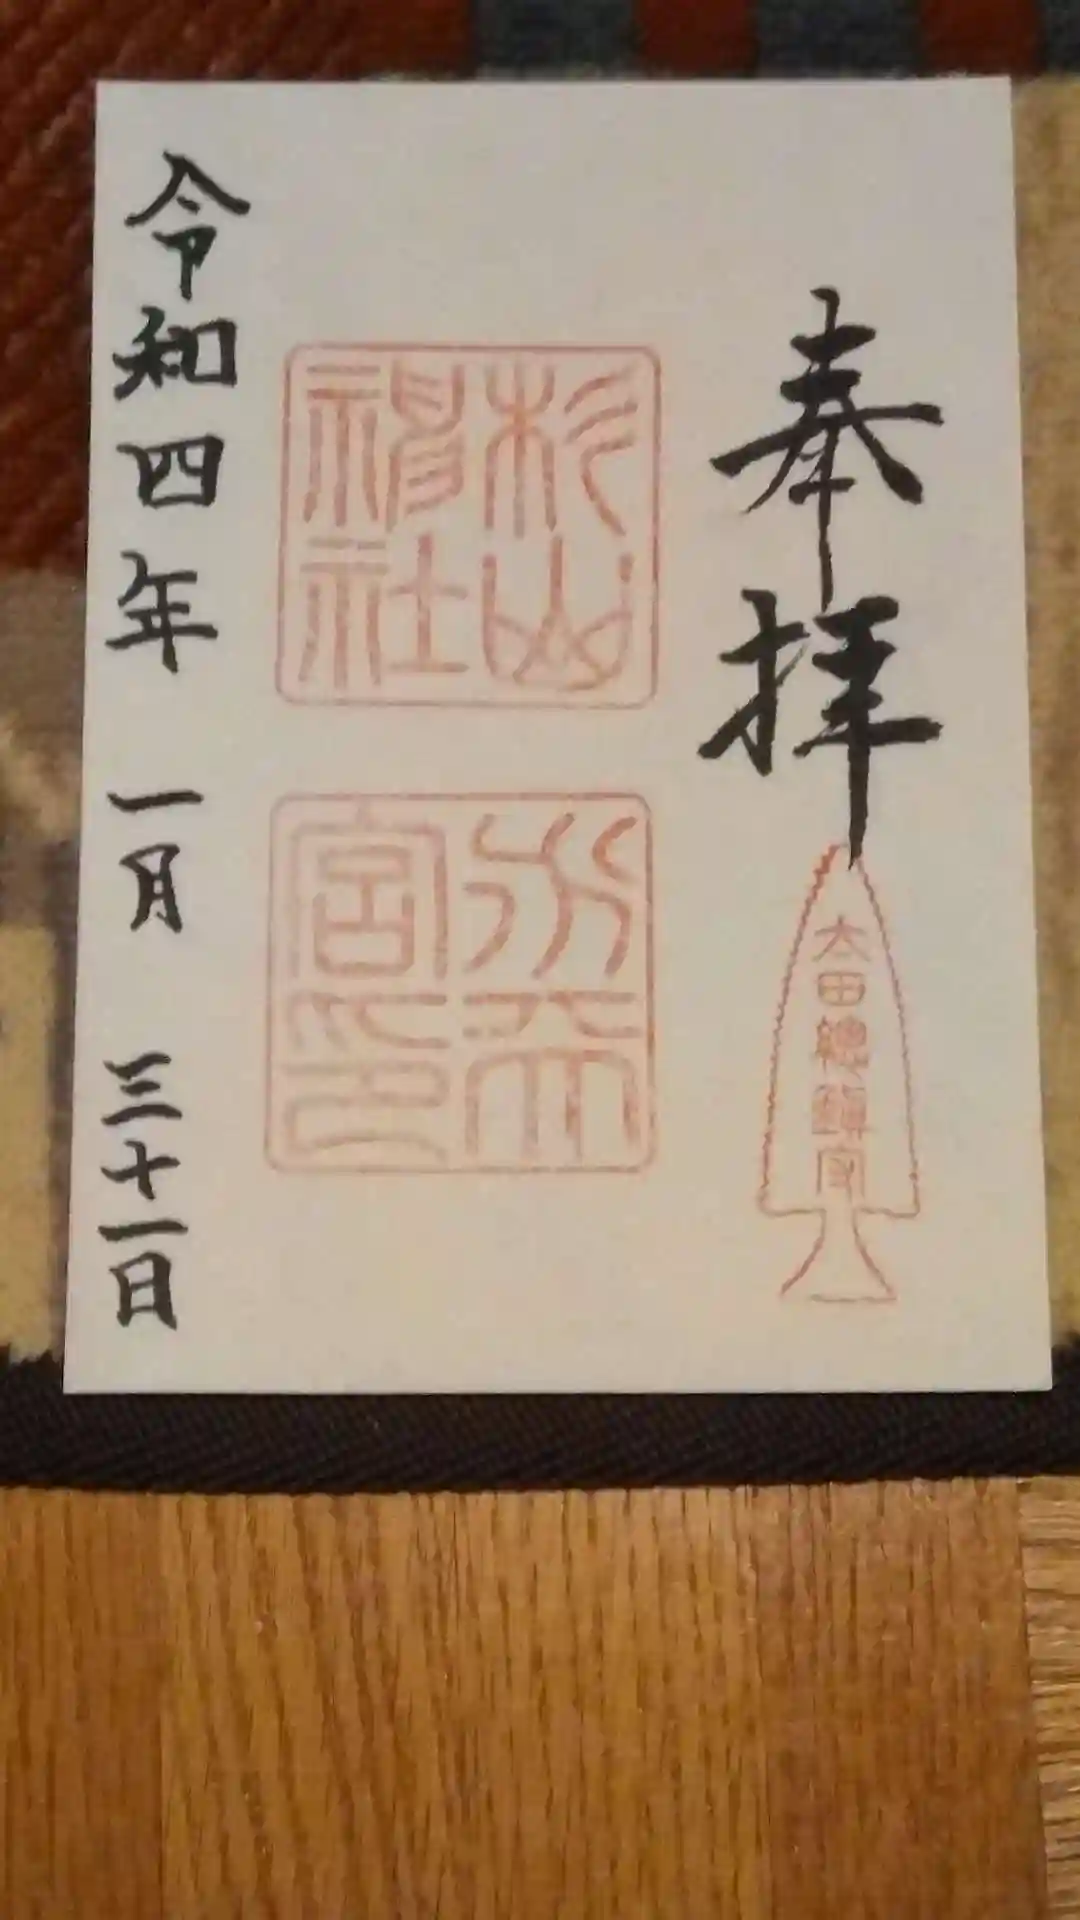 奉拝
太田總鎮守
杉山
神社
水天
宮印
令和四年 一月 三十一日